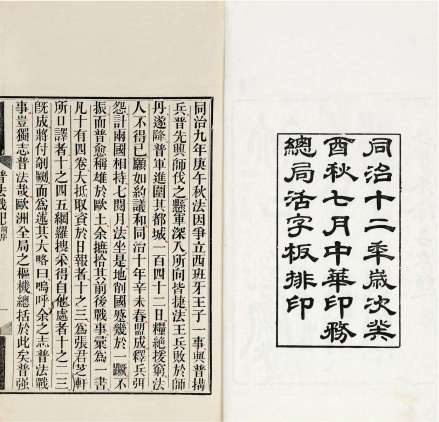 同治十二年歲次癸
酉秋七月中華印務
總局活字板排印
同治九年庚午秋法因爭立西班牙王子一事與普搆
兵普先興師伐之懸軍深入所向皆捷法王兵敗於師
丹遂降普軍進圍其都城一百四十二日糧絕援窮法
人不得已願如約議和同治十年辛未春盟成釋兵弭
怨計兩國相持七閱月法坐是地割國蹙幾於一蹶不
振而普愈稱雄於歐土余摭拾其前後戰事彙為一書
凡十有四卷大抵取資於日報者十之三為張君芝軒
所口譯者十之四五網羅搜采得自他處者十之二三
旣成將付剞劂而為述其大略曰嗚呼余之志普法戰
事豈獨志普法哉歐洲全局之樞機總括於此矣普強
普法戰紀 前序